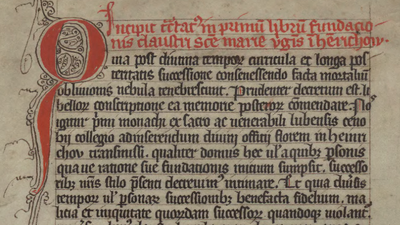 Incipit tctat' in primū librū fundacio
nis claustri sce marie v̉gis i henrichow.
Quia post diutina tempoꝝ curricula et longa pos
teritatis successione consenescendo facta mortaliū
obliuionis nebula tenebrescunt. Prudenter decretum est li
belloꝝ conscriptione ea memorie posteroꝝ cōmendare. Nos
igitur p̉mi monachi ex sacro ac venerabili lubensis ceno
bij collegio ad inserendum diuini officii florem in heinri
chov transmissi. qualiter domus hec ul' a quibꝰ ꝑsonis
qua ue ratione sue fundationis inicium sumpsit. successo
ribꝰ nr̄is stilo p̄senti decreuimꝰ intimare. Et quia diuersis
tempoꝝ ul' ꝑsonaꝝ successionibꝰ benefacta fidelium. ma
licia et iniquitate quordam successoꝝ quandoque violant̉.